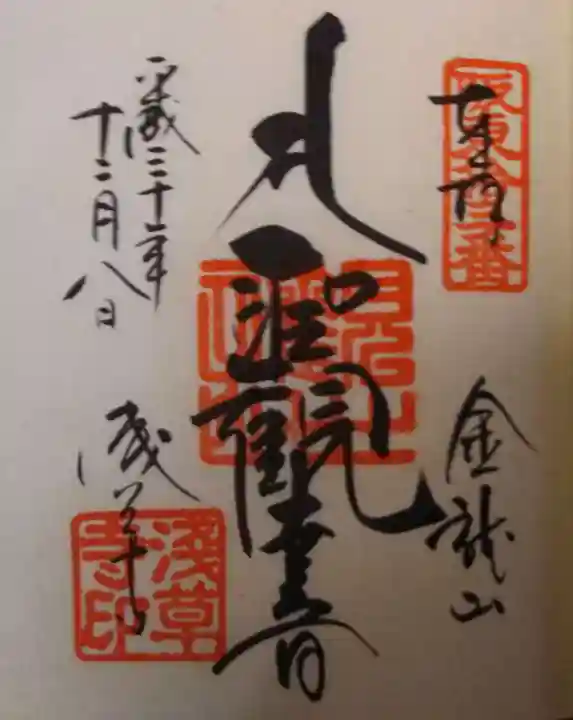 奉拝
坂東十三番
金龍山
聖観世音
平成三十年
十二月八日
浅草寺
浅草
寺印